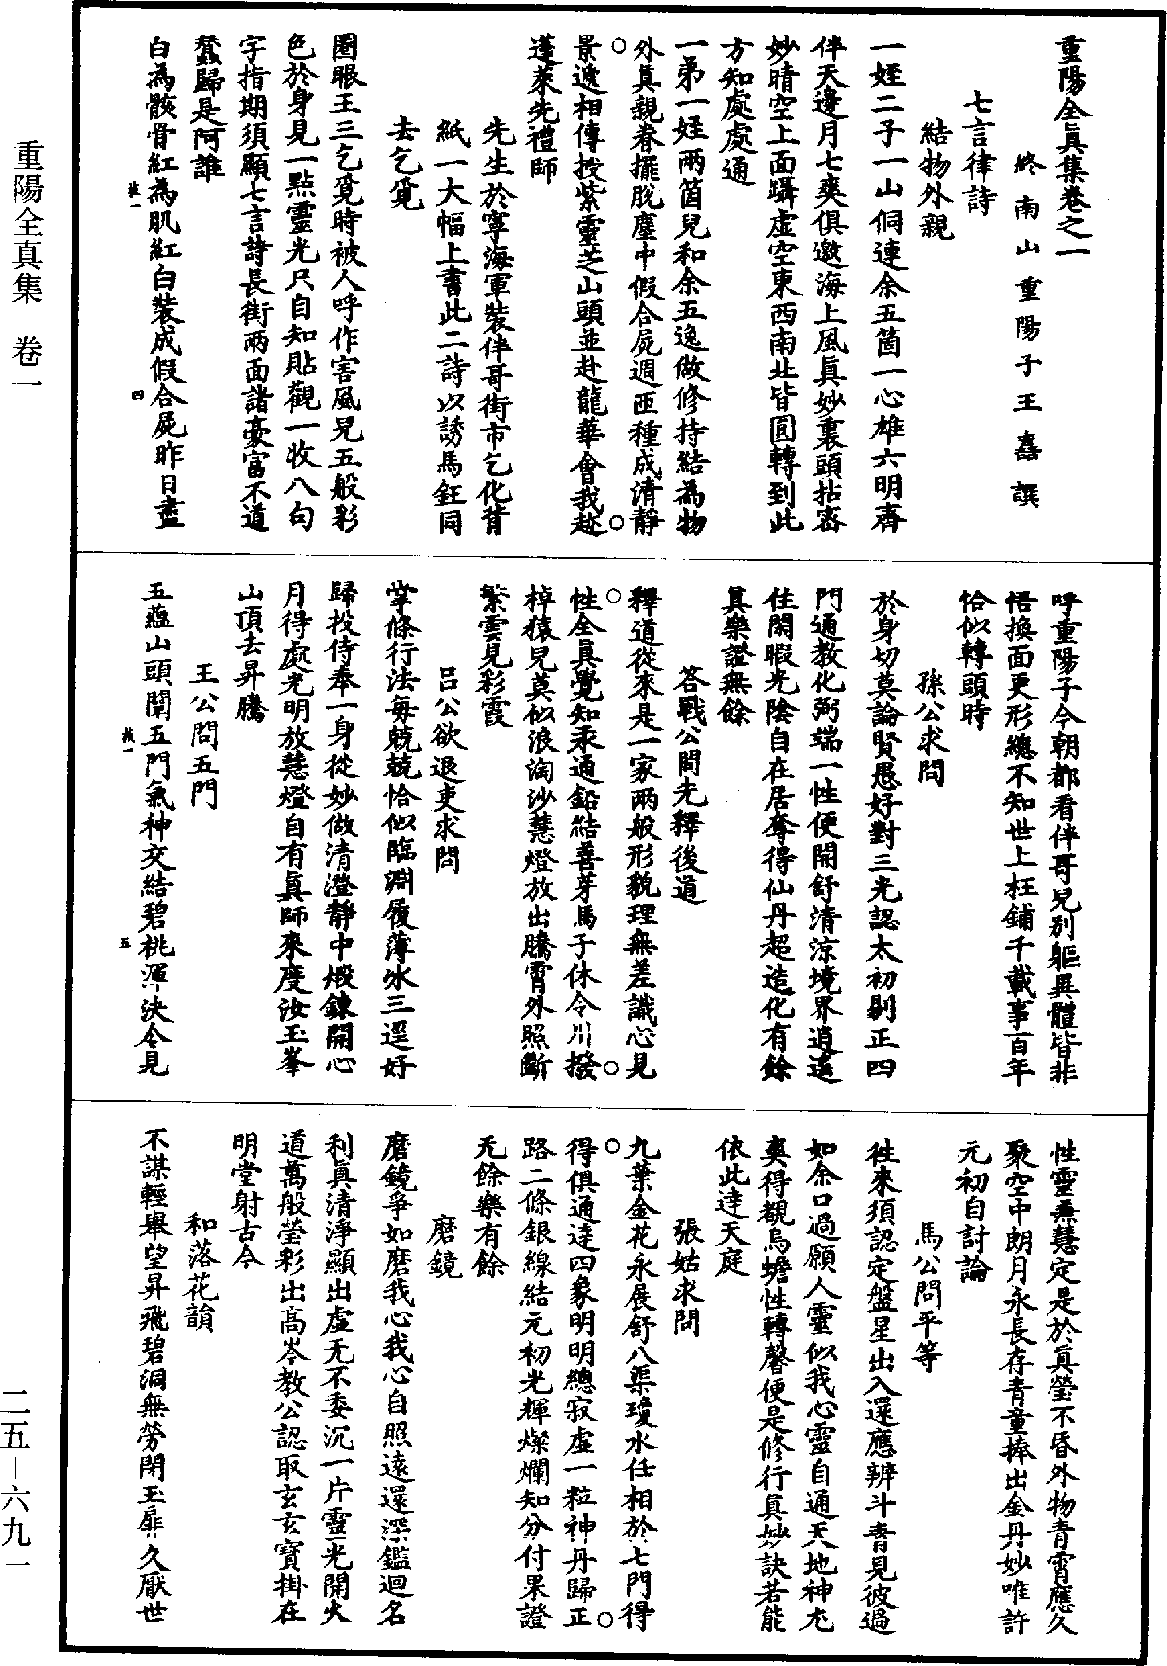 重陽全真集 卷一
二五—六九一
重陽全眞集卷之一
終南山重陽子王嚞譔
七言律詩
結物外親
一姪二子一山侗連余五箇一心雄六明齊
伴天邊月七爽俱邀海上風眞妙裏頭拈密
妙晴空上面躡虛空東西南北皆圓轉到此
方知處處通
一弟一姪兩箇兒和余五逸做修持結為物
外眞親眷擺脫塵中假合屍週匝種成清靜
景遞相傳授紫靈芝山頭並赴龍華會我趂
蓬萊先禮師
先生於寧海軍裝伴哥街市乞化背
紙一大幅上書此二詩以誘馬鈺同
去乞覓
圈眼王三乞覓時被人呼作害風兒五般彩
色於身見一點靈光只自知貼觀一收八句
字指期須顯七言詩長街兩面諸豪富不道
蠶歸是阿誰
白為骸骨紅為肌紅白裝成假合屍昨日盡
四
呼重陽子今朝都看伴哥兒別軀異體皆非
悟換面更形總不知世上枉鋪千載事百年
恰似轉頭時
孫公求問
於身切莫論賢愚好對三光認太初剔正四
門通教化弼端一性便開舒清涼境界逍遙
住閑暇光陰自在居奪得仙丹超造化有餘
眞樂證無餘
答戰公問先釋後道
釋道從來是一家兩般形貌理無差識心見
性全眞覺知汞通鉛結善芽馬子休令川撥
棹猿兒莫似浪淘沙慧燈放出騰霄外照斷
繁雲見彩霞
呂公欲退吏求問
掌條行法每兢兢恰似臨淵履薄冰三逕好
歸投侍奉一身從妙做清澄靜中煅鍊開心
月得處光明放慧燈自有眞師來度汝玉峯
山頂去昇騰
王公問五門
五蘊山頭闡五門氣神交結碧桃渾決令見
五
性靈兼慧定是於眞瑩不昏外物青霄應久
聚空中朗月永長存青童捧出金丹妙唯許
元初自討論
馬公問平等
徃來須認定盤星出入還應辨斗青見彼過
如余口過願人靈似我心靈自通天地神尤
爽得覩烏蟾性轉馨便是修行眞妙訣若能
依此達天庭
張姑求問
九葉金花永展舒八渠瓊水任相於七門得
得俱通達四象明明總寂虛一粒神丹歸正
路二條銀線結元初光輝燦爛知分付果證
无餘樂有餘
磨鏡
磨鏡爭如磨我心我心自照遠還深鑑迴名
利眞清淨顯出虛无不委沉一片靈光開大
道萬般瑩彩出高岑教公認取玄玄寶掛在
明堂射古今
和落花韻
不謀輕舉望昇飛碧洞無勞閉玉扉久厭世